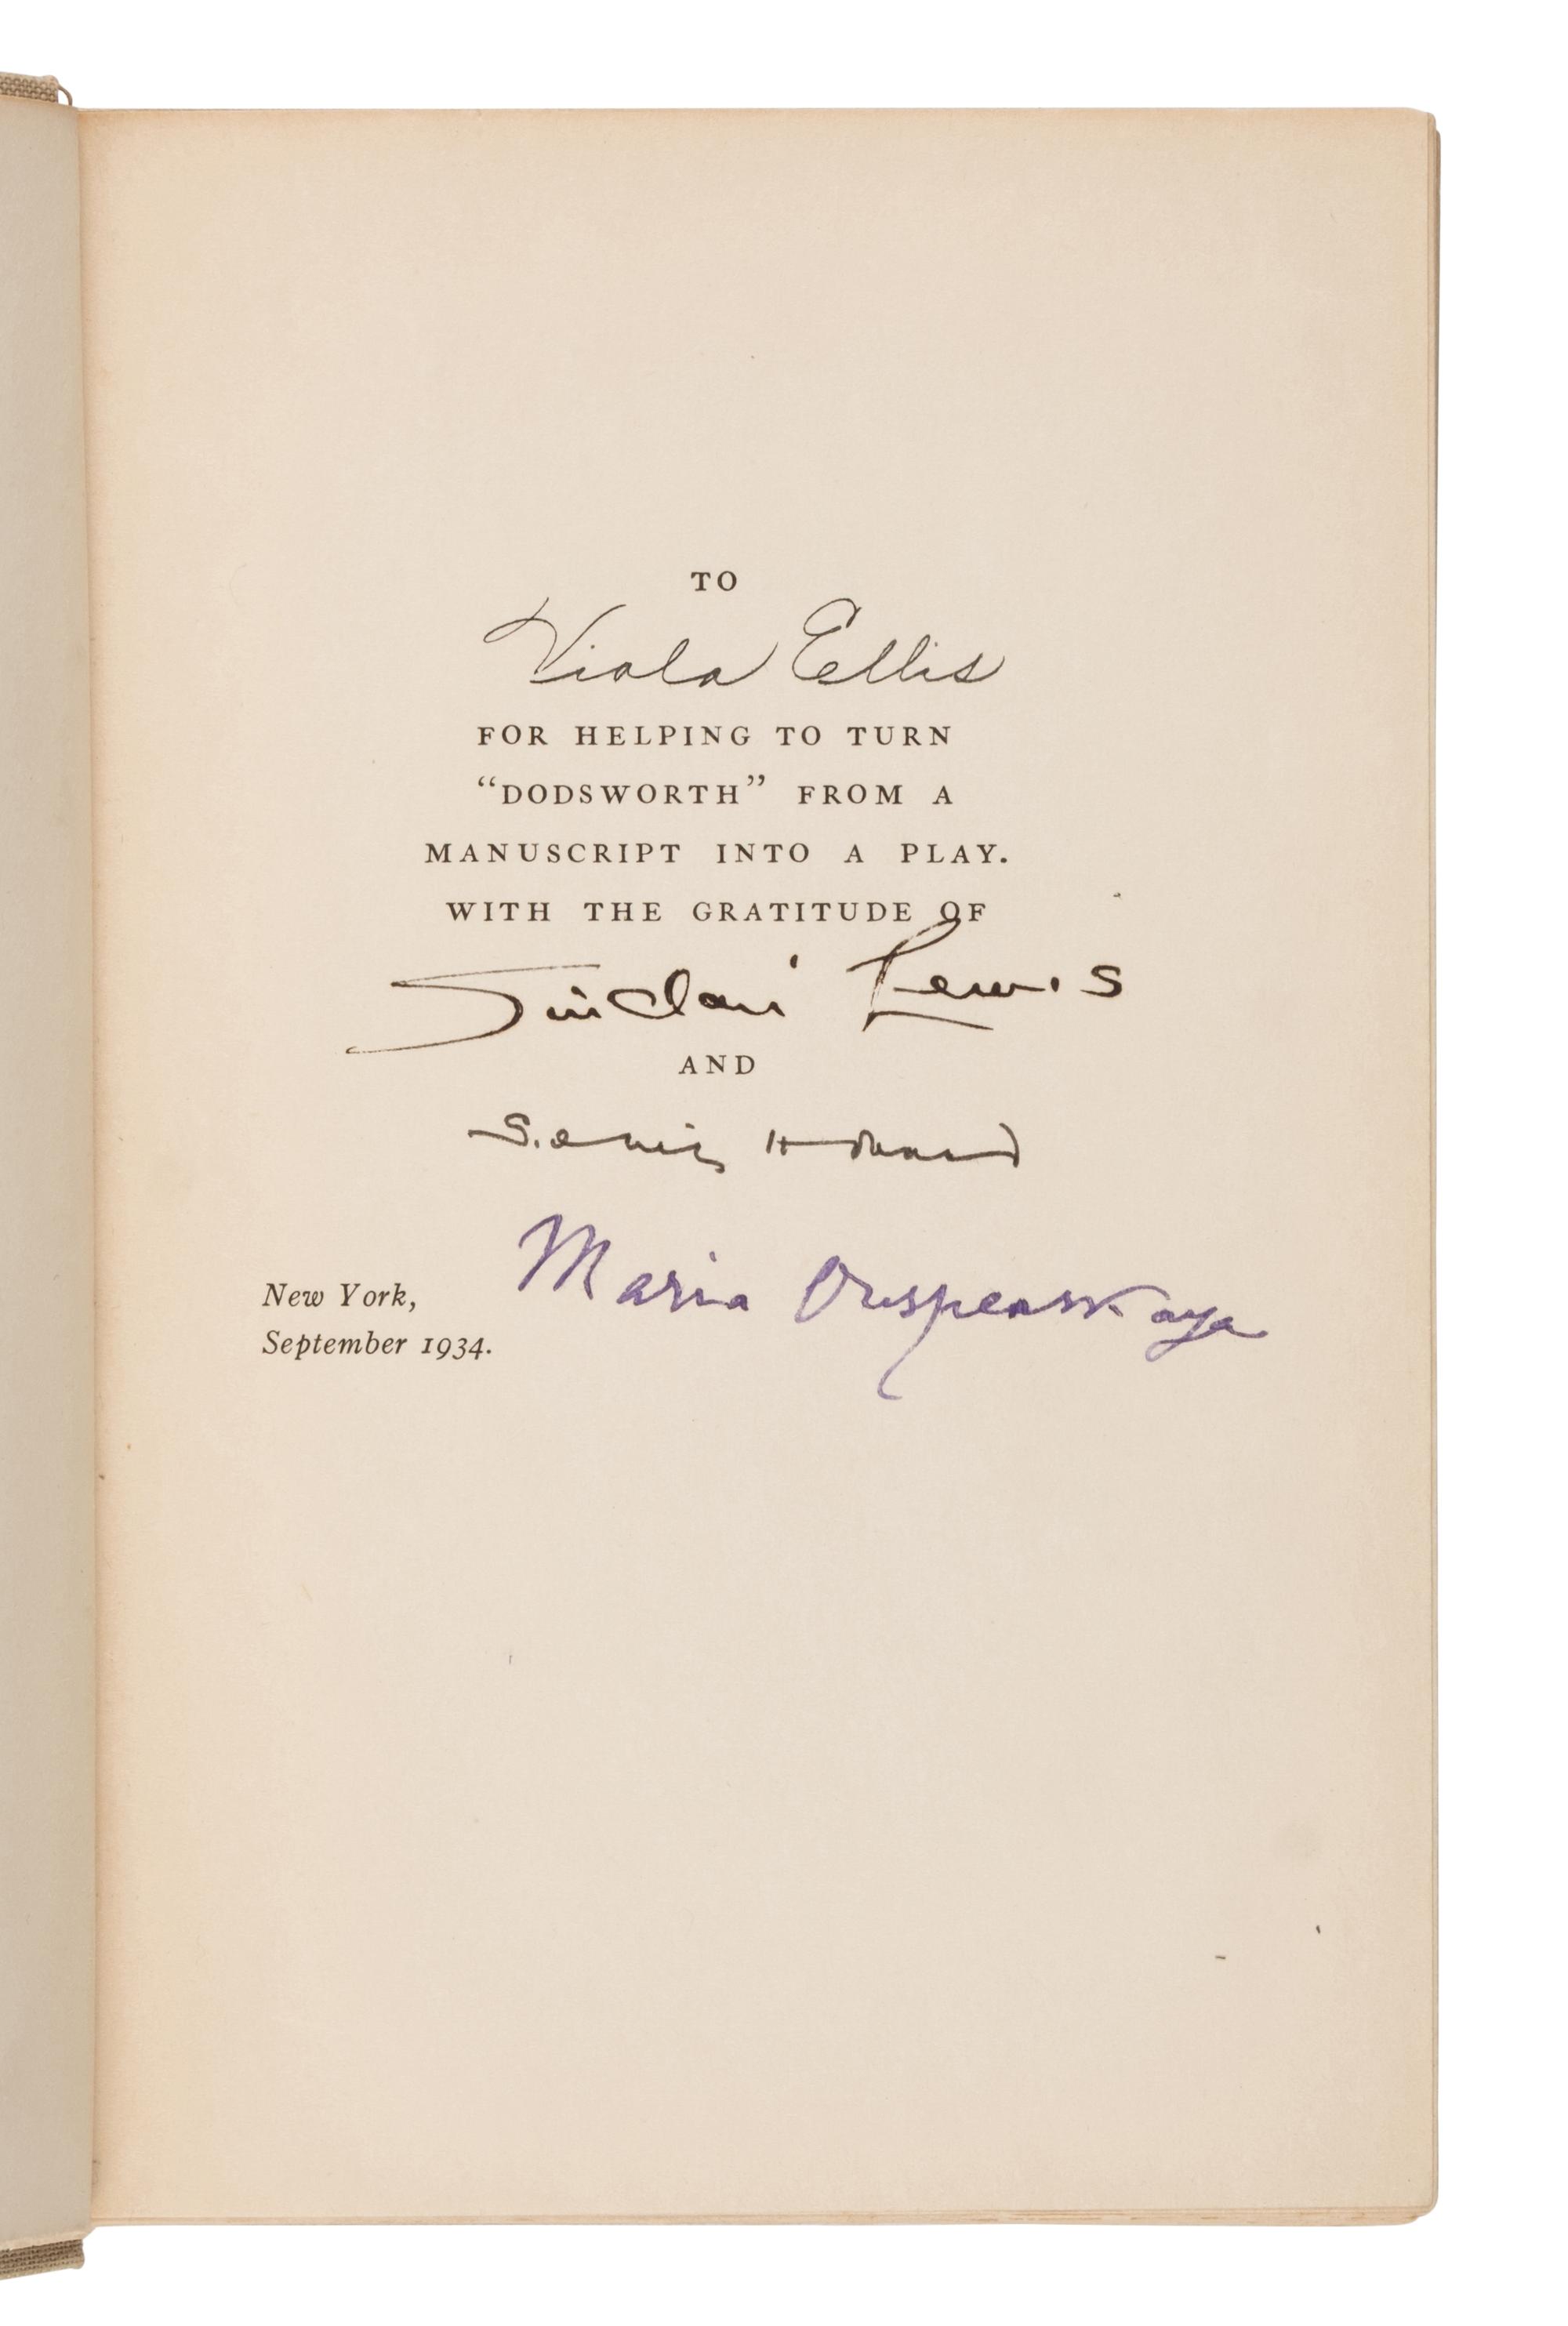 TO
Viola Ellis
FOR HELPING TO TURN
“DODSWORTH” FROM A
MANUSCRIPT INTO A PLAY.
WITH THE GRATITUDE OF
Sinclair Lewis
AND
Sidney Howard
Maria Ouspenskaya
New York,
September 1934.